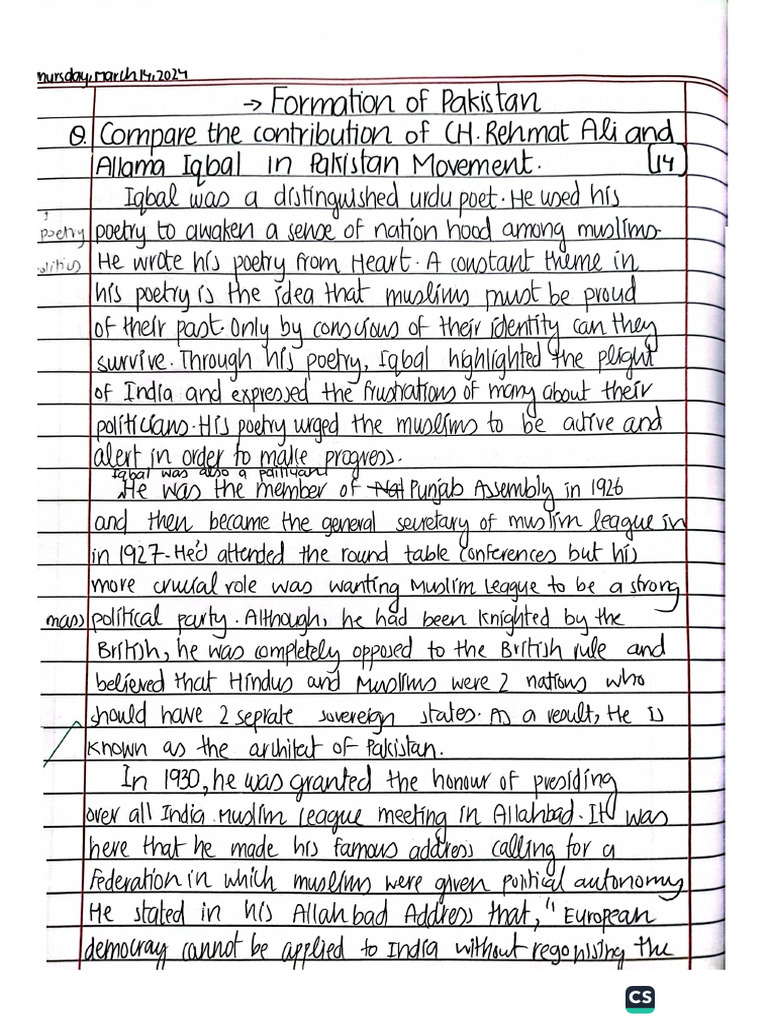 hursday, March 14, 2024
→ Formation of Pakistan
Q. Compare the contribution of CH. Rehmat Ali and
Allama Iqbal in Pakistan Movement. [14]
Iqbal was a distinguished urdu poet. He used his
poetry poetry to awaken a sense of nation hood among muslims.
olitics He wrote his poetry from Heart. A constant theme in
his poetry is the idea that muslims must be proud
of their past. Only by conscious of their identity can they
survive. Through his poetry, Iqbal highlighted the plight
of India and expressed the frustrations of many about their
politicians. His poetry urged the muslims to be active and
alert in order to make progress.
Iqbal was also a politician
He was the member of Punjab Assembly in 1926
and then became the general secretary of muslim league in
in 1927. He'd attended the round table conferences but his
more crucial role was wanting Muslim League to be a strong
mass political party. Although, he had been knighted by the
British, he was completely opposed to the British rule and
believed that Hindus and Muslims were 2 nations who
should have 2 seprate sovereign states. As a result, He is
known as the architect of Pakistan.
In 1930, he was granted the honour of presiding
over all India Muslim League meeting in Allahbad. It was
here that he made his famous address calling for a
Federation in which muslims were given political autonomy
He stated in his Allahbad Address that, "European
democray cannot be applied to India without regonising the
CS